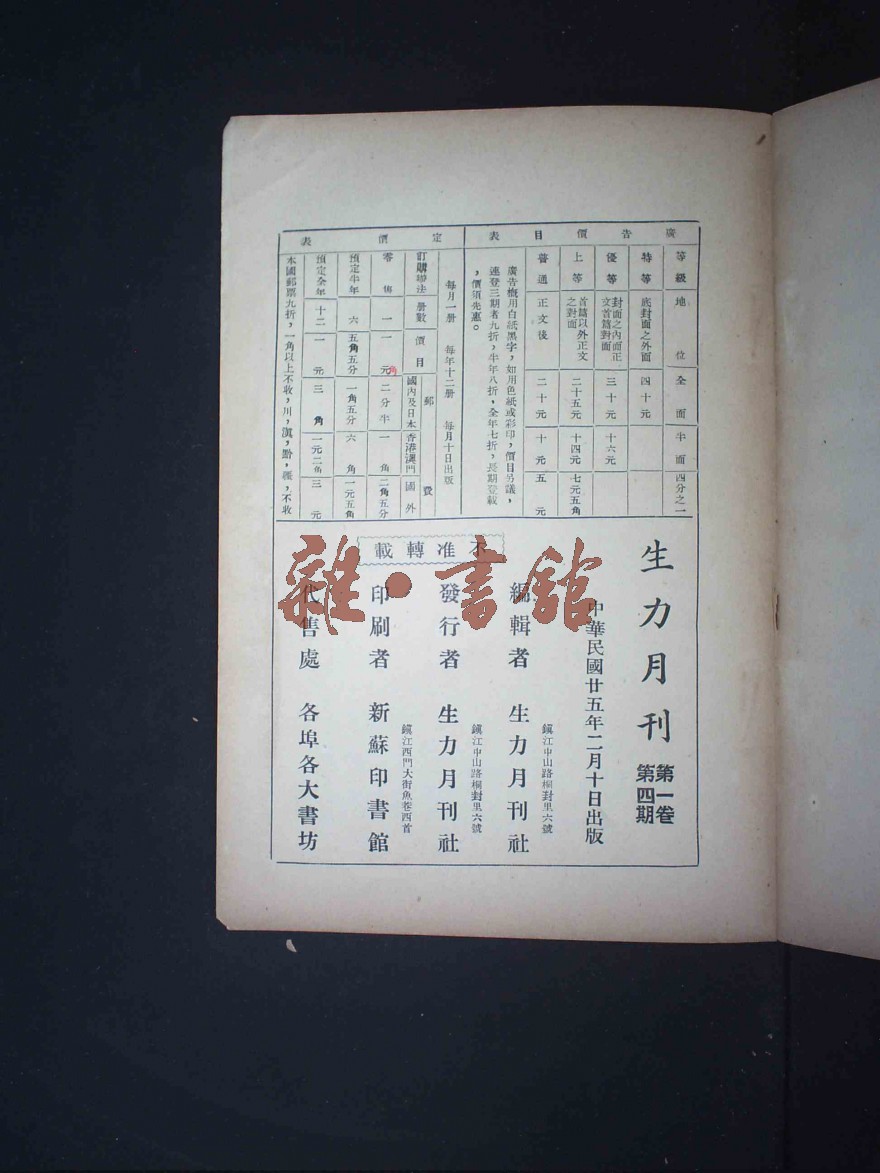 廣告價目表
等級 地位 全面 半面 四分之一
特等 底封面之外面 四十元
優等 封面之內面正文首篇對面 三十元 十六元
上等 首篇以外正文之對面 二十五元 十四元 七元五角
普通 正文後 二十元 十元 五元
廣告概用白紙黑字，如用色紙或彩印，價目另議，
連登三期者九折，半年八折，全年七折，長期登載
，價須先惠。
定價表
每月一冊 每年十二冊 每月十日出版
訂購辦法 冊數 價目 郵費
國內及日本 香港澳門 國外
零售 一 一元角 二分半 一角 二角五分
預定半年 六 五角五分 一角五分 六角 一元五角
預定全年 十二 一元 三角 一元二角 三元
本國郵票九折，一角以上不收，川，滇，黔，不收
生力月刊
第一卷
第四期
中華民國廿五年二月十日出版
不准轉載
編輯者 生力月刊社
鎮江中山路桐封里六號
發行者 生力月刊社
鎮江中山路桐封里六號
印刷者 新蘇印書館
鎮江西門大街魚巷西首
代售處 各埠各大書坊
雜·書館